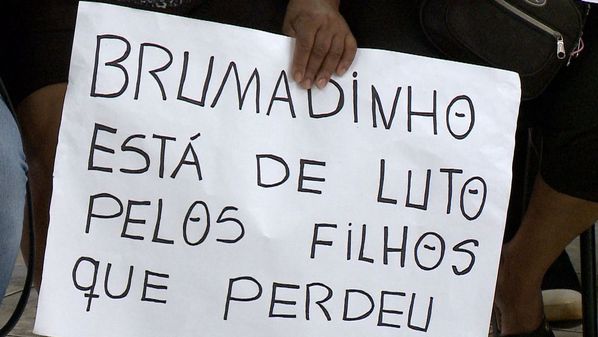 BRUMADINHO
ESTÁ DE LUTO
PELOS FILHOS
QUE PERDEU